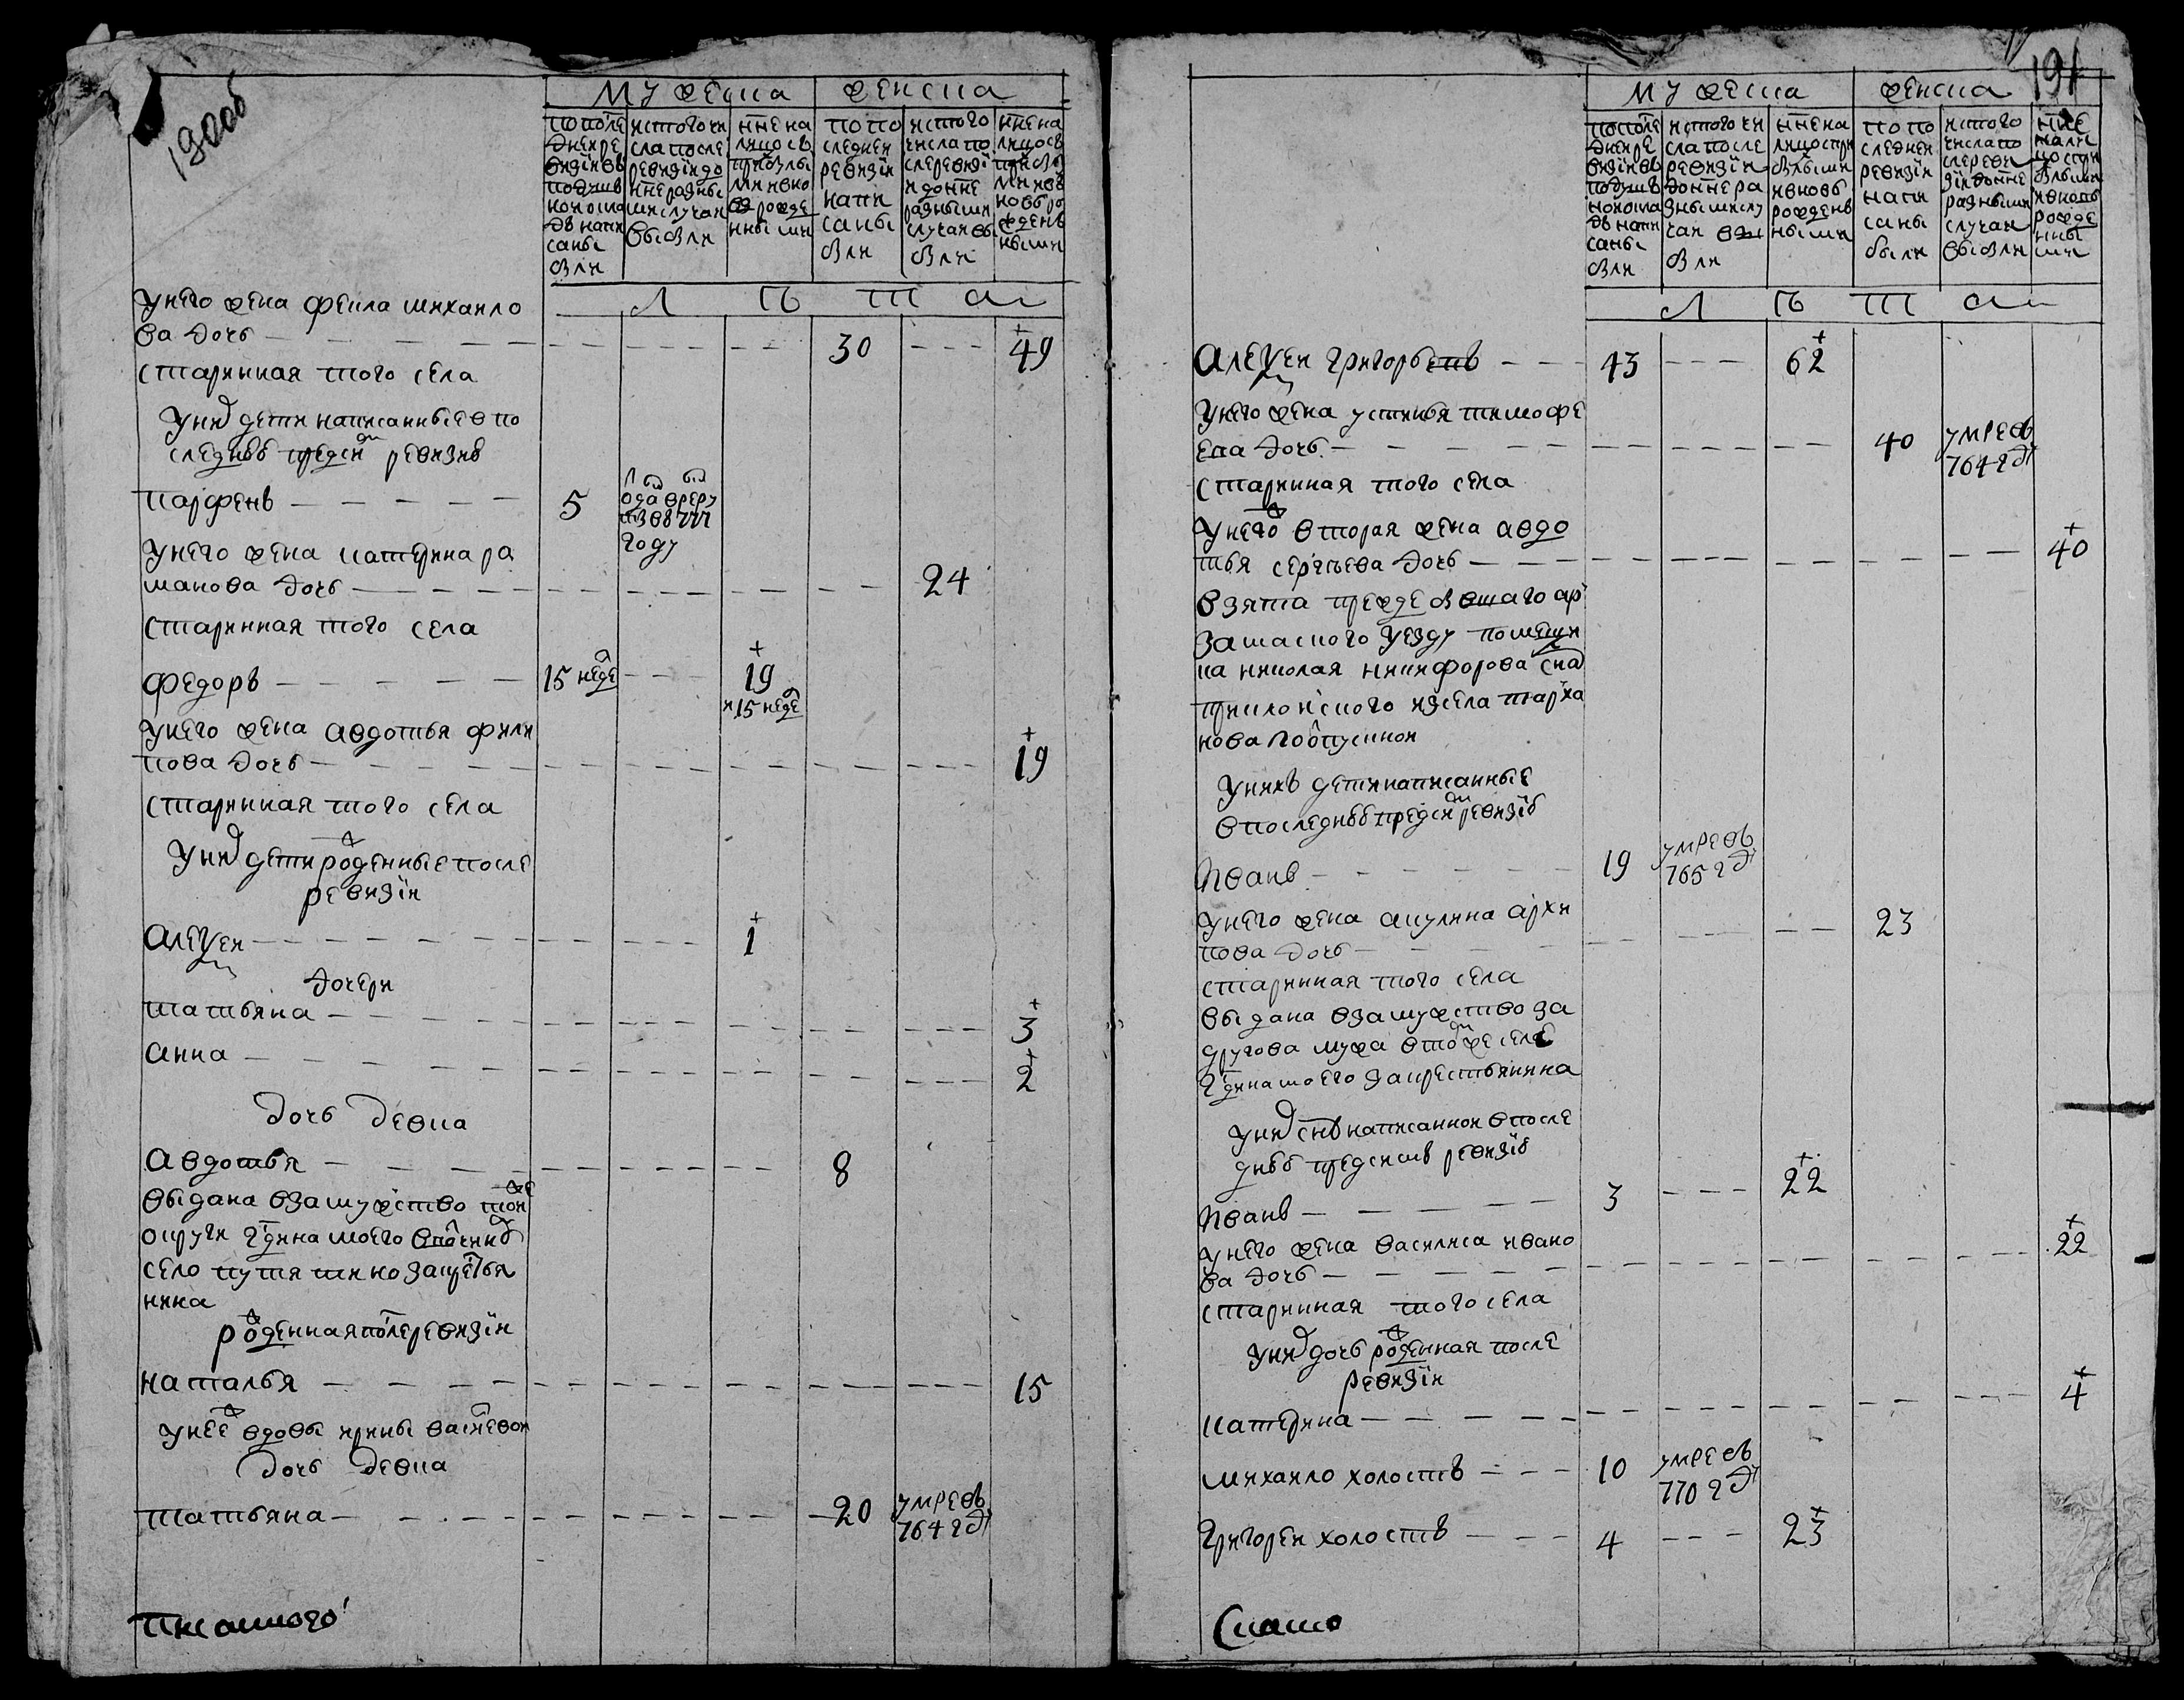 190об
мужеска женска
по после
дней ре
визии въ
подуш
ном окла
де напи
саны
были
ис того чи
сла после
ревизии до
ныне разны
ми случаи
выбыли
ныне на
лицо съ
прибылы
ми и вно
вь рожде
нными
по по
следней
ревизии
напи
саны
были
ис того
числа по
сле ревизи
и до ныне
разными
случаи вы
были
ныне на
лицо съ
прибы
ми и въ
новь ро
жденъ
ными
л ѣ т а
у него жена фекла михаило
ва дочь 30 49
старинная того села
у них дети написанные в по
следнеѣ пред сим ревизиѣ
парфенъ 5
отдан в рекру
ты въ 777
году
у него жена катерина ра
манова дочь 24
старинная того села
федоръ 15 неде 19
и 15 неде
у него жена авдотья фили
пова дочь 19
старинная того села
у них дети рожденные после
ревизии
алеѯеи 1
дочери
татьяна 3
анна 2
дочь девка
авдотья 8
выдана взамужство той же
округи гдина моего вотчины
село путятино за крестья
нина
рожденная после ревизии
наталья 15
у нее ж вдовы ирины васильевои
дочь девка
татьяна 20 умре въ
764 гд
писаниого
191
мужеска женска
по после
дней ре
визии въ
подуш
ном окла
де напи
саны
были
ис того чи
сла после
ревизии
до ныне ра
зными слу
чаи вы
были
ныне на
лицо с при
былыми
и вновь
рожденъ
ными
по по
следней
ревизии
напи
саны
были
ис того
числа по
сле реви
зии до ныне
разными
случаи
выбыли
ныне
нали
цо с при
былыми
и вновь
рожде
нны
ми
л ѣ т а
алеѯеи григорьевъ 43 62
у него жена устинья тимофе
ева дочь 40 умре въ
764 гд
старинная того села
у него ж вторая жена авдо
тья сергѣева дочь 40
взята прежде бывшаго ар
замаского уезду помещи
ка николая никифорова сна
приклонского из села тарха
нова по отпускной
у нихъ дети написанные
в последнеѣ пред сим ревизиѣ
иванъ 19 умре въ
765 гд
у него жена акулина архи
пова дочь 23
старинная того села
выдана взамужство за
другова мужа в том же селе
гдина моего за крестьянина
у них снъ написанной в после
днеѣ пред симъ ревизиѣ
иванъ 3 22
у него жена василиса ивано
ва дочь 22
старинная того села
у них дочь рожденная после
ревизии
катерина 4
михаило холостъ 10 умре въ
770 гд
григореи холостъ 4 23